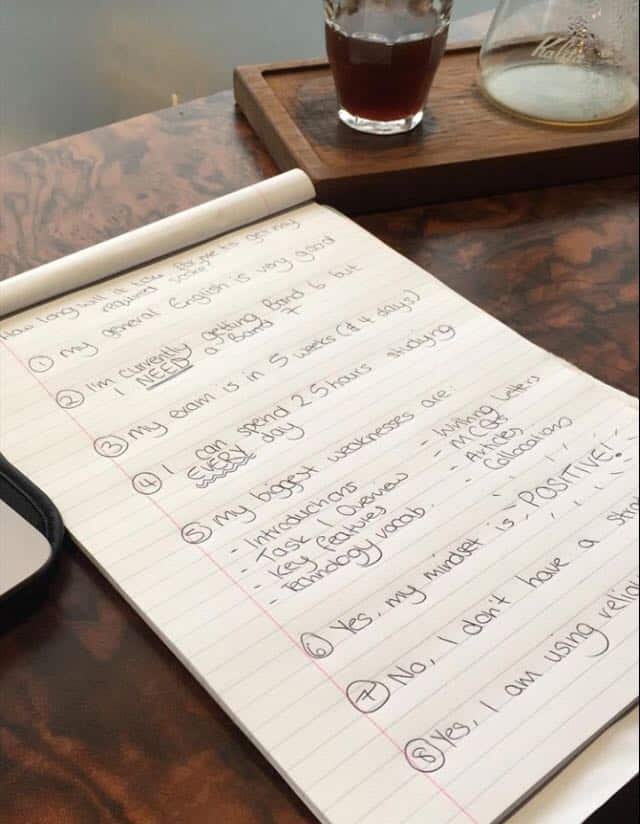 Kalita
how long will it take for me to get my
required score?
① my general English is very good
② I'm currently getting Band 6 but
I NEED a Band 7
③ my exam is in 5 weeks (& 4 days)
④ I can spend 2.5 hours studying
EVERY day
⑤ my biggest weaknesses are:
- Introductions
- Task 1 Overview
- Key features
- Technology vocab.
- Writing letters
- MCQs
- Articles
- Collocations
⑥ Yes, my mindset is POSITIVE!
⑦ No, I don't have a
⑧ Yes, I am using